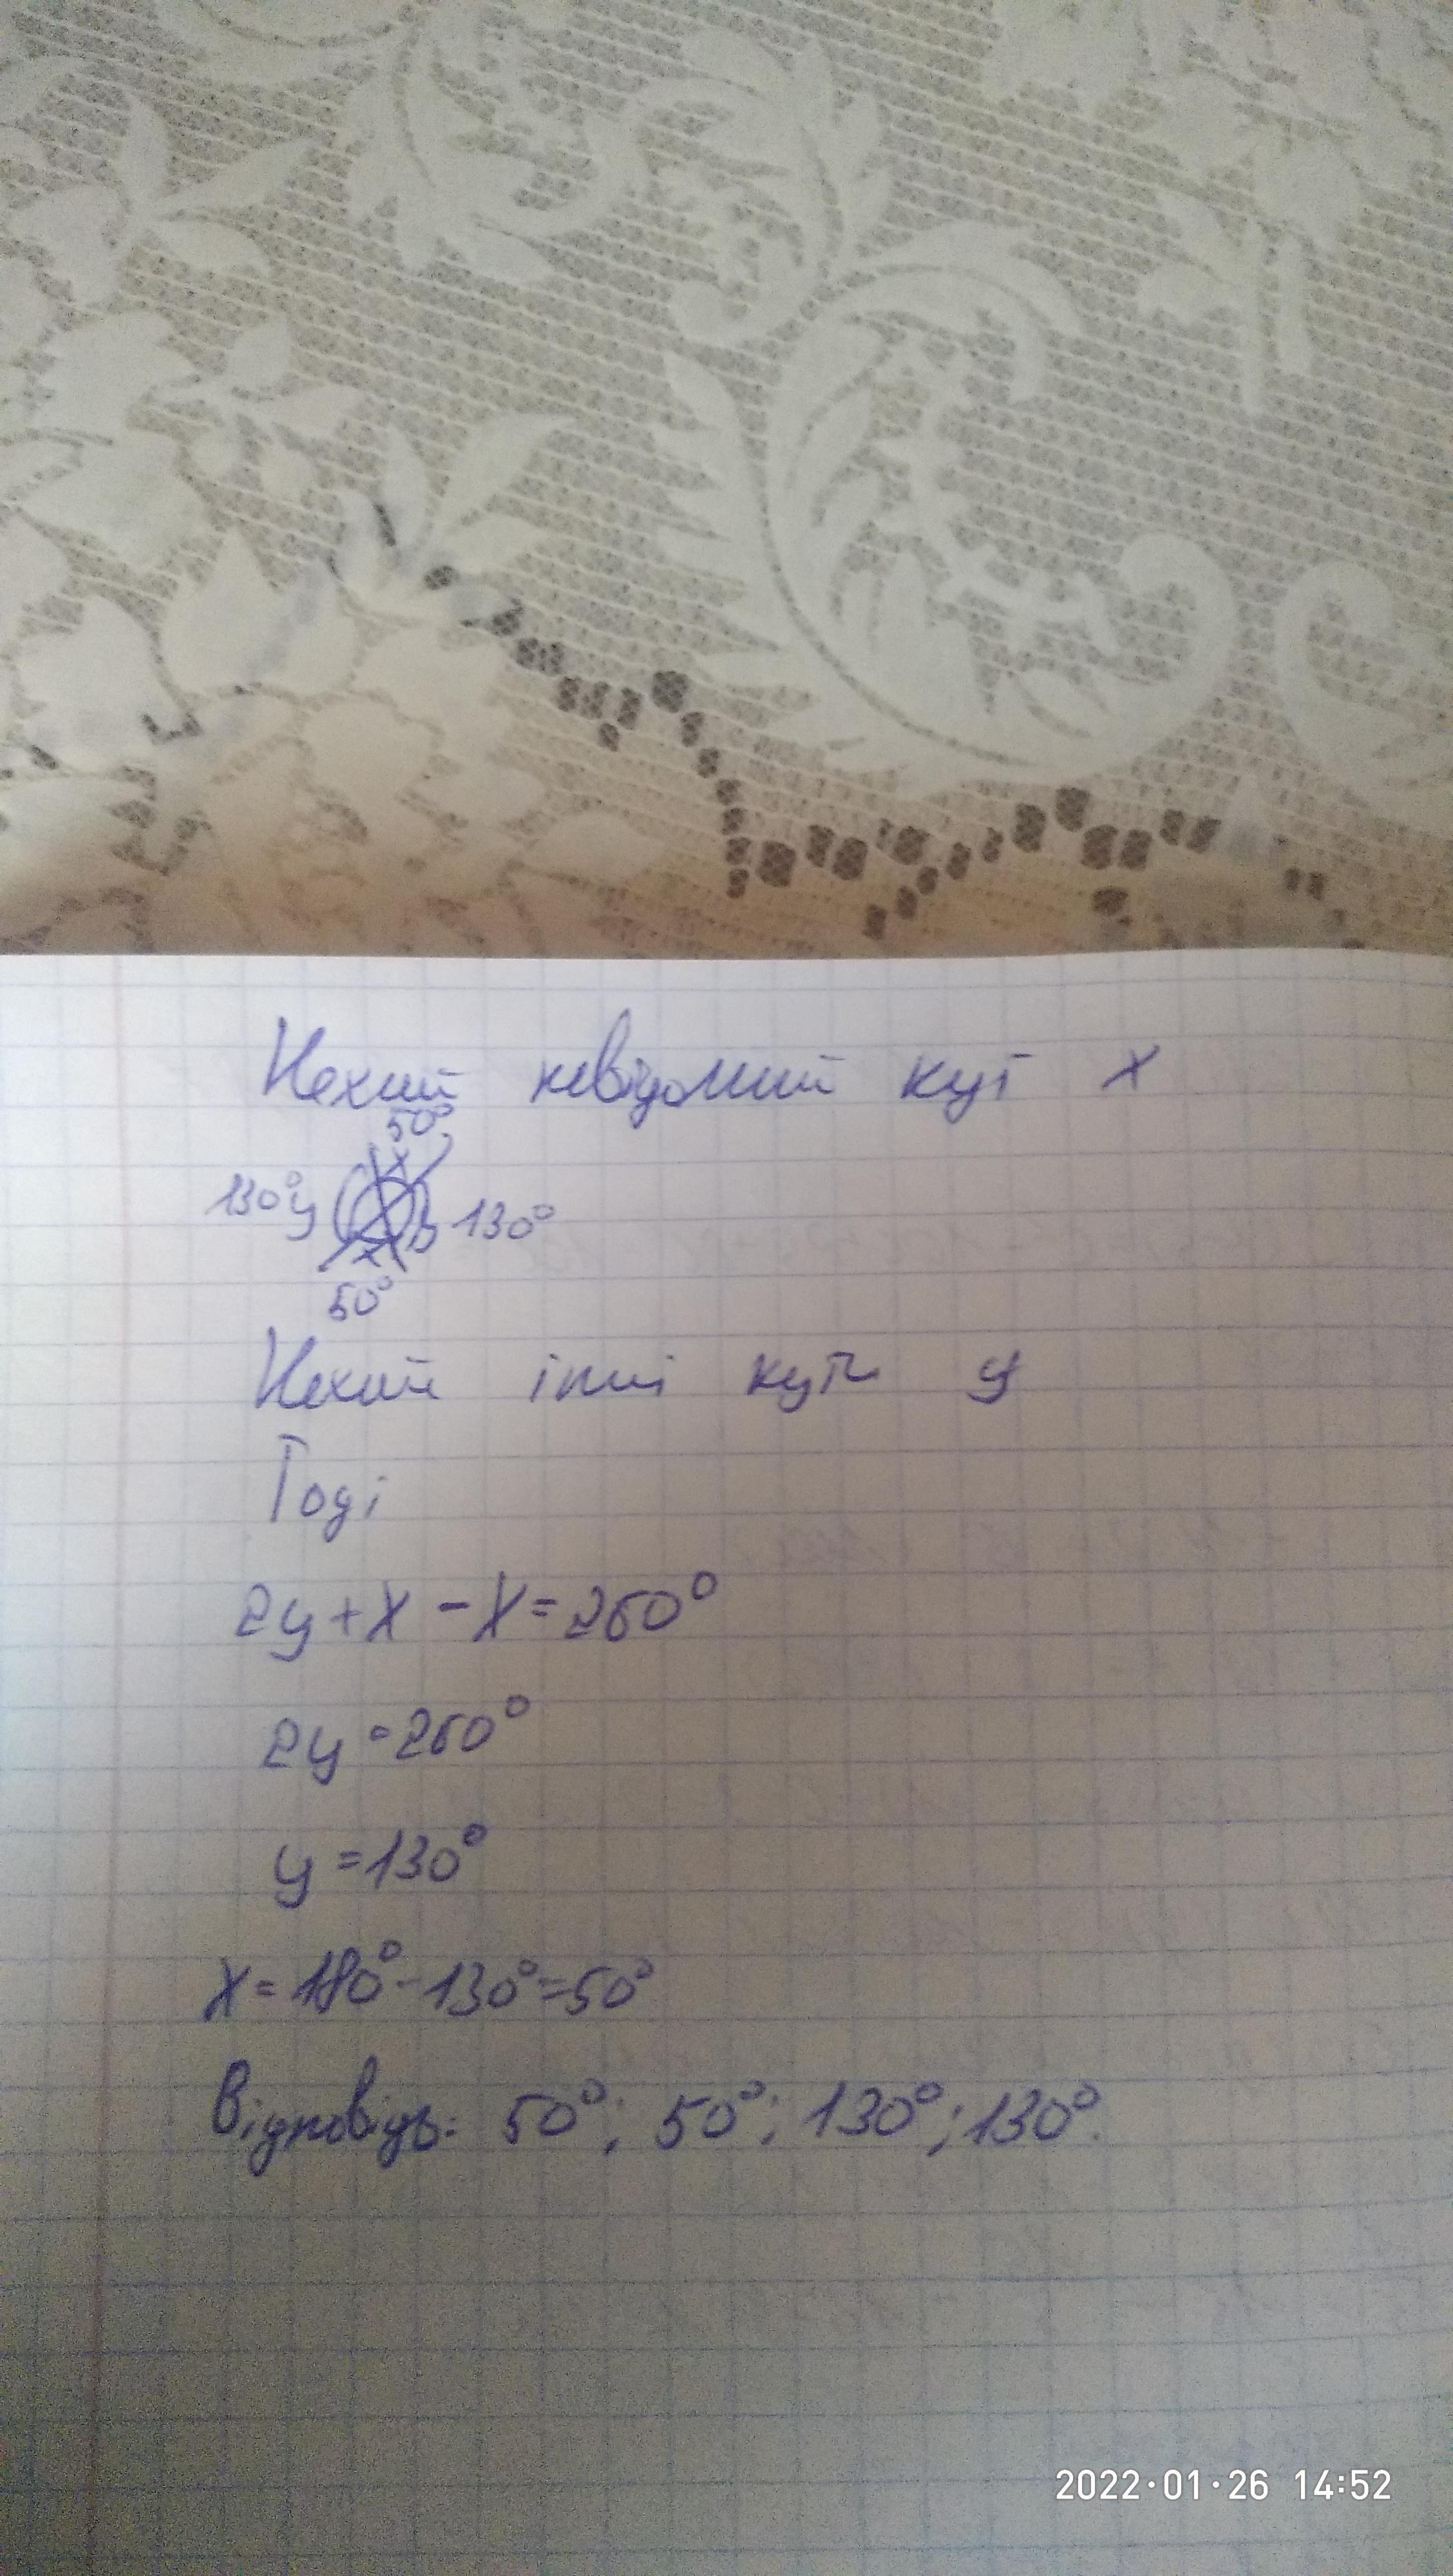 Нехай невідомий кут x
50°
130° y 130°
50°
Нехай інші кути y
Тоді
2y+x-x=260°
2y=260°
y=130°
x=180°-130°=50°
Відповідь: 50°; 50°; 130°; 130°.
2022·01·26 14:52